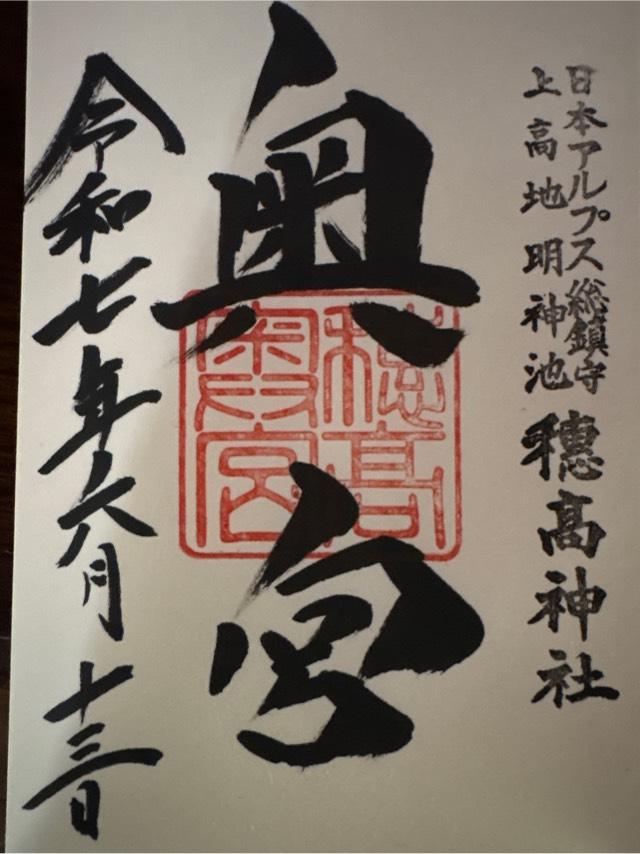 日本アルプス総鎮守
上高地明神池
穂高神社
奥宮
穂高
奥宮
令和七年六月十三日